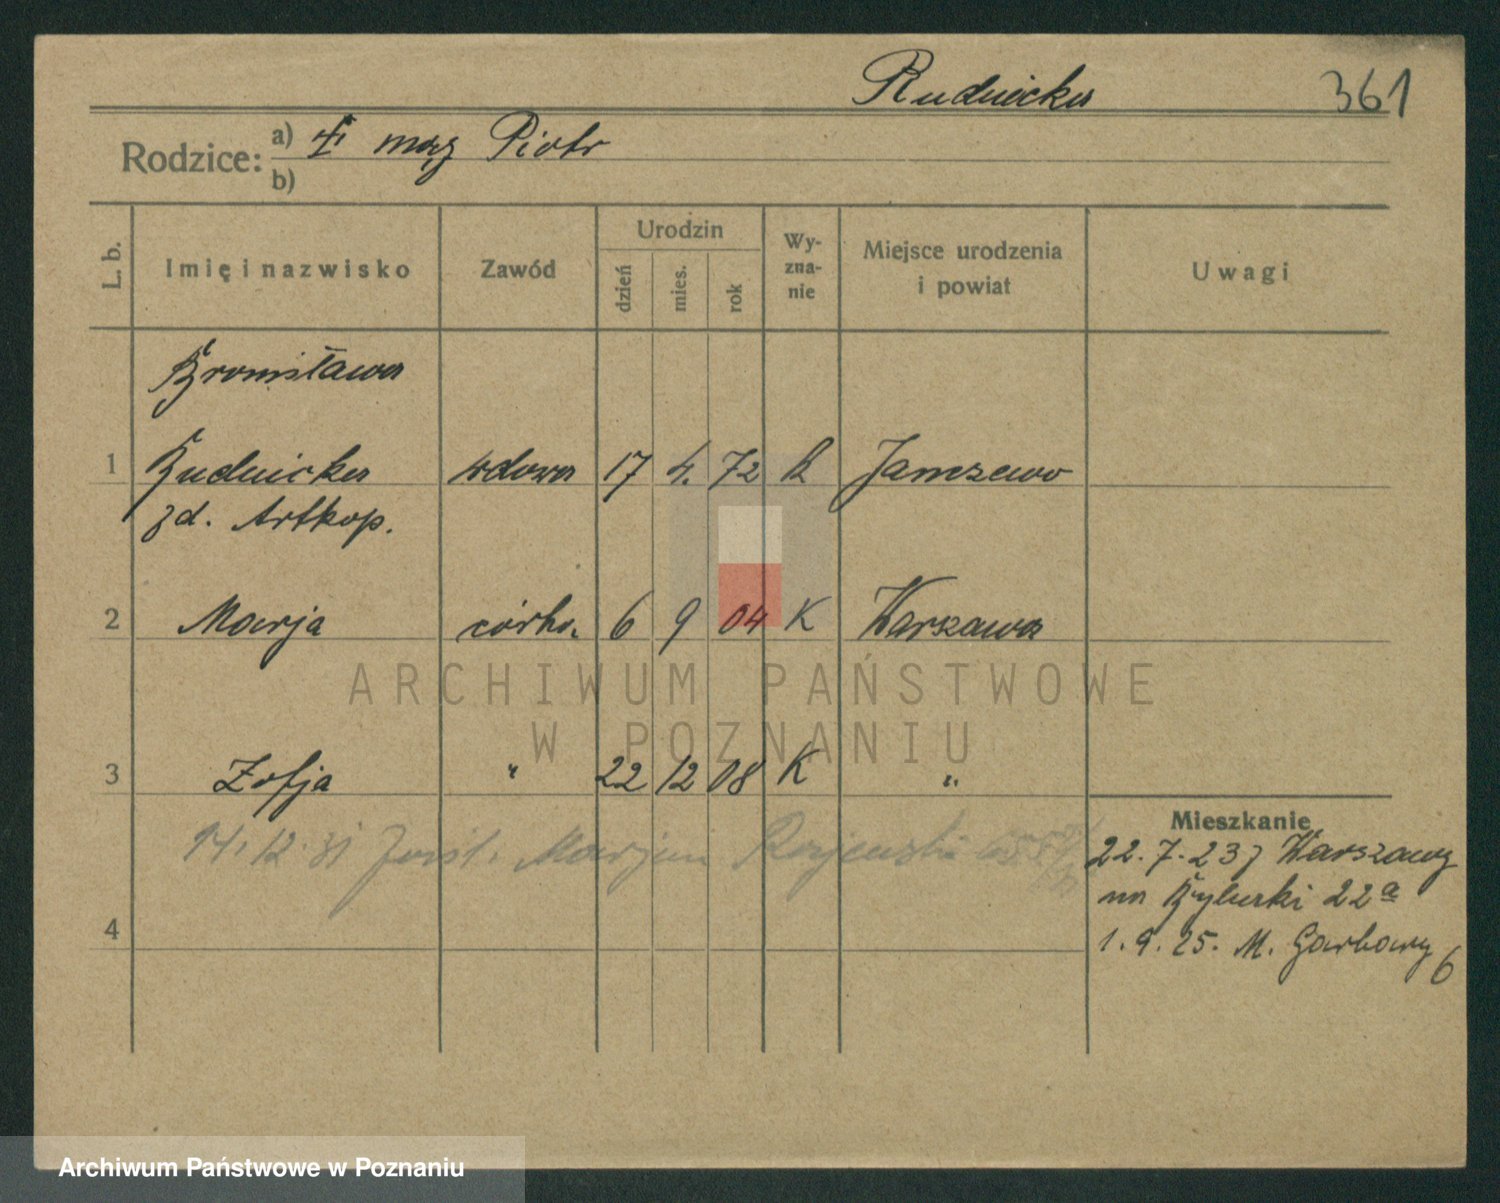 Rudnicka 361
Rodzice: a) I mąż Piotr
b)
L. b. Imię i nazwisko Zawód Urodzin dzień mies. rok Wyznanie Miejsce urodzenia i powiat Uwagi
Bronisława
1 Rudnicka wdowa 17 4. 72 K Janczewo
zd. Artkop.
2 Marja córka 6 9 04 K Warszawa
ARCHIWUM PAŃSTWOWE
W POZNANIU
3 Zofja " 22 12 08 K "
Mieszkanie
14. 12. 31 Marjan
22. 7. 23 z Warszawy
na 22a
4
1. 9. 25. M. Garbary 6
Archiwum Państwowe w Poznaniu